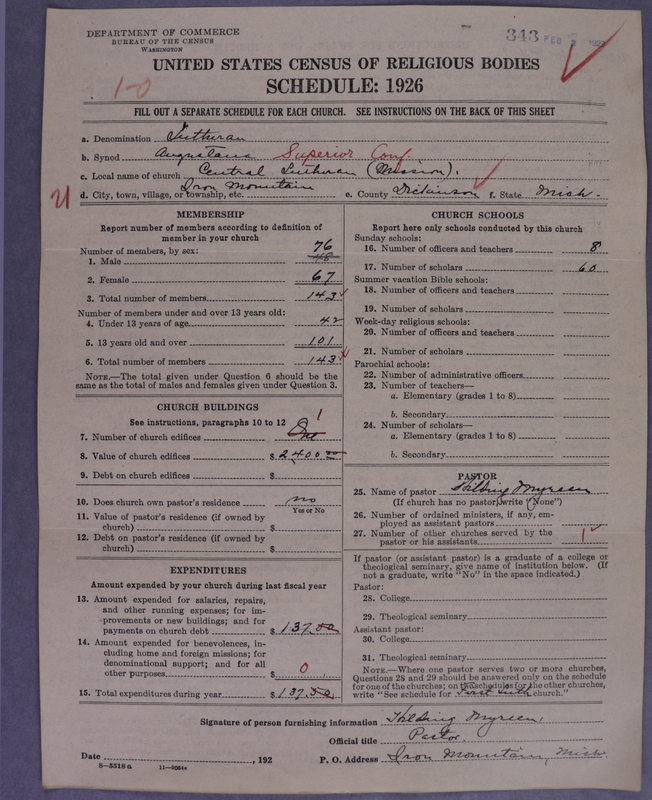 DEPARTMENT OF COMMERCE
BUREAU OF THE CENSUS
WASHINGTON
343 FEB
UNITED STATES CENSUS OF RELIGIOUS BODIES
SCHEDULE: 1926
1-0
FILL OUT A SEPARATE SCHEDULE FOR EACH CHURCH. SEE INSTRUCTIONS ON THE BACK OF THIS SHEET
a. Denomination Lutheran
b. Synod Augustana Superior Conf.
c. Local name of church Central Lutheran (Mission).
d. City, town, village, or township, etc. Iron Mountain e. County Dickinson f. State Mich.
MEMBERSHIP
Report number of members according to definition of
member in your church
Number of members, by sex:
1. Male 76
2. Female 67
3. Total number of members 143
Number of members under and over 13 years old:
4. Under 13 years of age 42
5. 13 years old and over 101
6. Total number of members 143
NOTE.—The total given under Question 6 should be the
same as the total of males and females given under Question 3.
CHURCH BUILDINGS
See instructions, paragraphs 10 to 12
7. Number of church edifices One 1
8. Value of church edifices $ 2400 00
9. Debt on church edifices $
10. Does church own pastor's residence no
Yes or No
11. Value of pastor's residence (if owned by
church) $
12. Debt on pastor's residence (if owned by
church) $
EXPENDITURES
Amount expended by your church during last fiscal year
13. Amount expended for salaries, repairs,
and other running expenses; for im-
provements or new buildings; and for
payments on church debt $ 137.50
14. Amount expended for benevolences, in-
cluding home and foreign missions; for
denominational support; and for all
other purposes $ 0
15. Total expenditures during year $ 137.50
CHURCH SCHOOLS
Report here only schools conducted by this church
Sunday schools:
16. Number of officers and teachers 8
17. Number of scholars 60
Summer vacation Bible schools:
18. Number of officers and teachers
19. Number of scholars
Week-day religious schools:
20. Number of officers and teachers
21. Number of scholars
Parochial schools:
22. Number of administrative officers
23. Number of teachers—
a. Elementary (grades 1 to 8)
b. Secondary
24. Number of scholars—
a. Elementary (grades 1 to 8)
b. Secondary
PASTOR
25. Name of pastor
(If church has no pastor, write "None")
26. Number of ordained ministers, if any, em-
ployed as assistant pastors
27. Number of other churches served by the
pastor or his assistants 1
If pastor (or assistant pastor) is a graduate of a college or
theological seminary, give name of institution below. (If
not a graduate, write "No" in the space indicated.)
Pastor:
28. College
29. Theological seminary
Assistant pastor:
30. College
31. Theological seminary
NOTE.—Where one pastor serves two or more churches,
Questions 28 and 29 should be answered only on the schedule
for one of the churches; on the schedules for the other churches,
write "See schedule for First Luth church."
Signature of person furnishing information
Official title Pastor.
Date , 192
P. O. Address Iron Mountain, Mich
8-5518 a